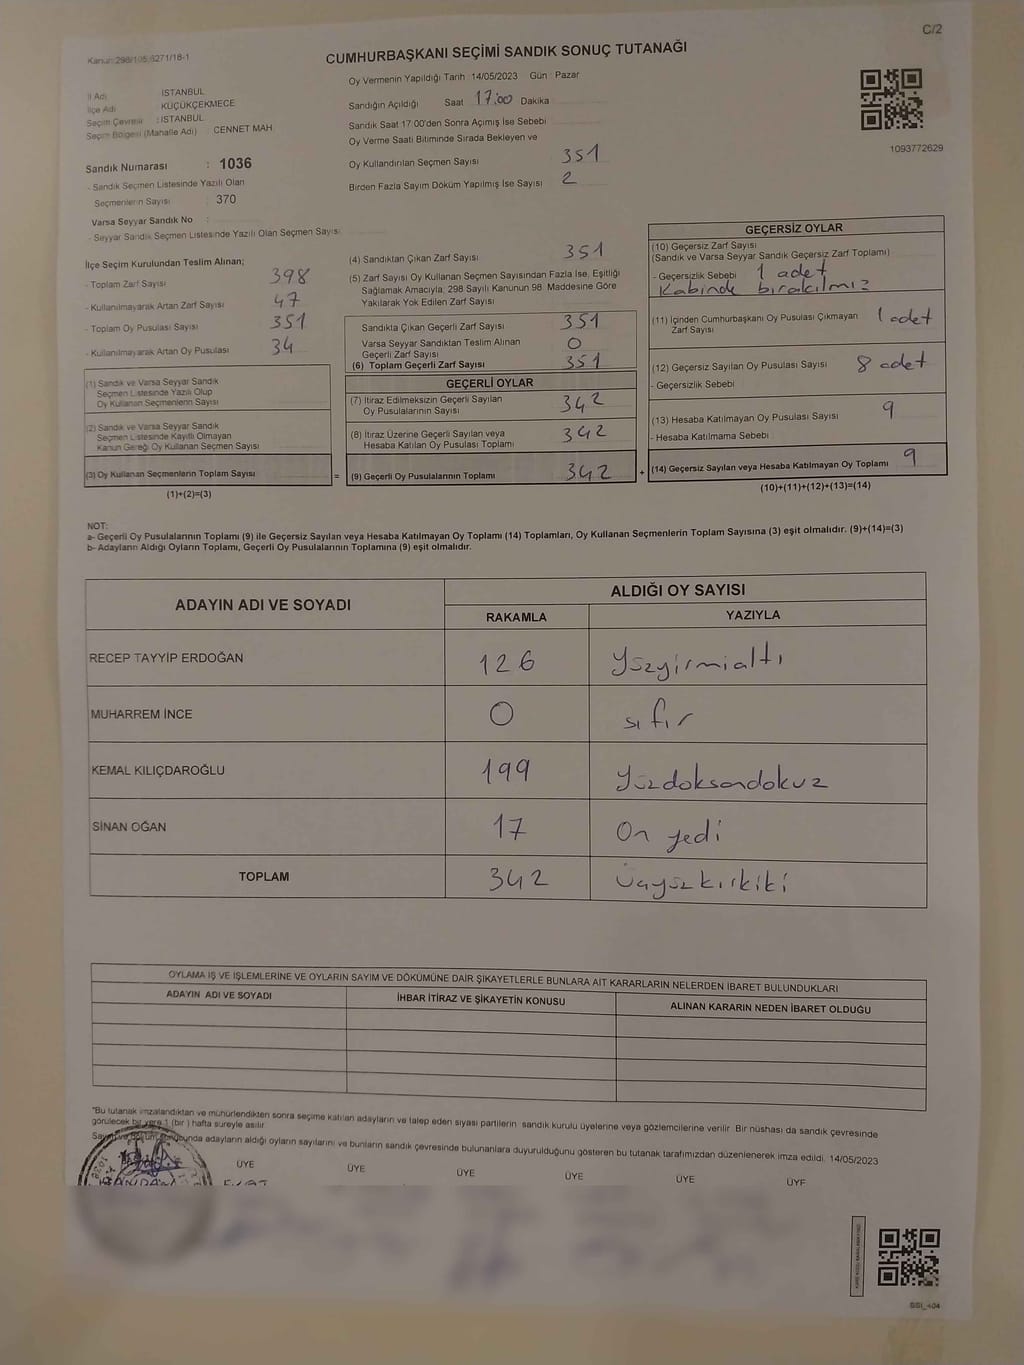 C/2
Kanun: 298/105,6271/18-1
CUMHURBAŞKANI SEÇİMİ SANDIK SONUÇ TUTANAĞI
İl Adı İSTANBUL
İlçe Adı KÜÇÜKÇEKMECE
Seçim Çevresi : İSTANBUL
Seçim Bölgesi (Mahalle Adı) CENNET MAH
Sandık Numarası : 1036
- Sandık Seçmen Listesinde Yazılı Olan
Seçmenlerin Sayısı : 370
Varsa Seyyar Sandık No :
- Seyyar Sandık Seçmen Listesinde Yazılı Olan Seçmen Sayısı
Oy Vermenin Yapıldığı Tarih 14/05/2023 Gün Pazar
Sandığın Açıldığı Saat 17:00 Dakika
Sandık Saat 17:00'den Sonra Açımış İse Sebebi
Oy Verme Saati Bitiminde Sırada Bekleyen ve
Oy Kullandırılan Seçmen Sayısı 351
Birden Fazla Sayım Döküm Yapılmış İse Sayısı 2
1093772629
İlçe Seçim Kurulundan Teslim Alınan;
- Toplam Zarf Sayısı 398
- Kullanılmayarak Artan Zarf Sayısı 47
- Toplam Oy Pusulası Sayısı 351
- Kullanılmayarak Artan Oy Pusulası 34
(1) Sandık ve Varsa Seyyar Sandık
Seçmen Listesinde Yazılı Olup
Oy Kullanan Seçmenlerin Sayısı
(2) Sandık ve Varsa Seyyar Sandık
Seçmen Listesinde Kayıtlı Olmayan
Kanun Gereği Oy Kullanan Seçmen Sayısı
(3) Oy Kullanan Seçmenlerin Toplam Sayısı =
(1)+(2)=(3)
(4) Sandıktan Çıkan Zarf Sayısı 351
(5) Zarf Sayısı Oy Kullanan Seçmen Sayısından Fazla İse, Eşitliği
Sağlamak Amacıyla, 298 Sayılı Kanunun 98 Maddesine Göre
Yakılarak Yok Edilen Zarf Sayısı
Sandıkta Çıkan Geçerli Zarf Sayısı 351
Varsa Seyyar Sandıktan Teslim Alınan
Geçerli Zarf Sayısı 0
(6) Toplam Geçerli Zarf Sayısı 351
GEÇERLİ OYLAR
(7) İtiraz Edilmeksizin Geçerli Sayılan
Oy Pusulalarının Sayısı 342
(8) İtiraz Üzerine Geçerli Sayılan veya
Hesaba Katılan Oy Pusulası Toplamı 342
(9) Geçerli Oy Pusulalarının Toplamı 342 +
GEÇERSİZ OYLAR
(10) Geçersiz Zarf Sayısı
(Sandık ve Varsa Seyyar Sandık Geçersiz Zarf Toplamı)
- Geçersizlik Sebebi 1 adet
Kabinde bırakılmız
(11) İçinden Cumhurbaşkanı Oy Pusulası Çıkmayan
Zarf Sayısı 1 adet
(12) Geçersiz Sayılan Oy Pusulası Sayısı 8 adet
- Geçersizlik Sebebi
(13) Hesaba Katılmayan Oy Pusulası Sayısı 9
- Hesaba Katılmama Sebebi
(14) Geçersiz Sayılan veya Hesaba Katılmayan Oy Toplamı 9
(10)+(11)+(12)+(13)=(14)
NOT:
a- Geçerli Oy Pusulalarının Toplamı (9) ile Geçersiz Sayılan veya Hesaba Katılmayan Oy Toplamı (14) Toplamları, Oy Kullanan Seçmenlerin Toplam Sayısına (3) eşit olmalıdır. (9)+(14)=(3)
b- Adayların Aldığı Oyların Toplamı, Geçerli Oy Pusulalarının Toplamına (9) eşit olmalıdır.
ADAYIN ADI VE SOYADI ALDIĞI OY SAYISI
RAKAMLA YAZIYLA
RECEP TAYYİP ERDOĞAN 126 Yüzyirmialtı
MUHARREM İNCE 0 sıfır
KEMAL KILIÇDAROĞLU 199 Yüzdoksandokuz
SİNAN OĞAN 17 On yedi
TOPLAM 342 Üçyüzkırkiki
OYLAMA İŞ VE İŞLEMLERİNE VE OYLARIN SAYIM VE DÖKÜMÜNE DAİR ŞİKAYETLERLE BUNLARA AİT KARARLARIN NELERDEN İBARET BULUNDUKLARI
ADAYIN ADI VE SOYADI İHBAR İTİRAZ VE ŞİKAYETİN KONUSU ALINAN KARARIN NEDEN İBARET OLDUĞU
"Bu tutanak imzalandıktan ve mühürlendikten sonra seçime katılan adayların ve talep eden siyasi partilerin sandık kurulu üyelerine veya gözlemcilerine verilir. Bir nüshası da sandık çevresinde
görülecek bir yere 1 (bir) hafta süreyle asılır.
adayların aldığı oyların sayılarını ve bunların sandık çevresinde bulunanlara duyurulduğunu gösteren bu tutanak tarafımızdan düzenlenerek imza edildi. 14/05/2023
ÜYE ÜYE ÜYE ÜYE ÜYE ÜYE
SSI_404